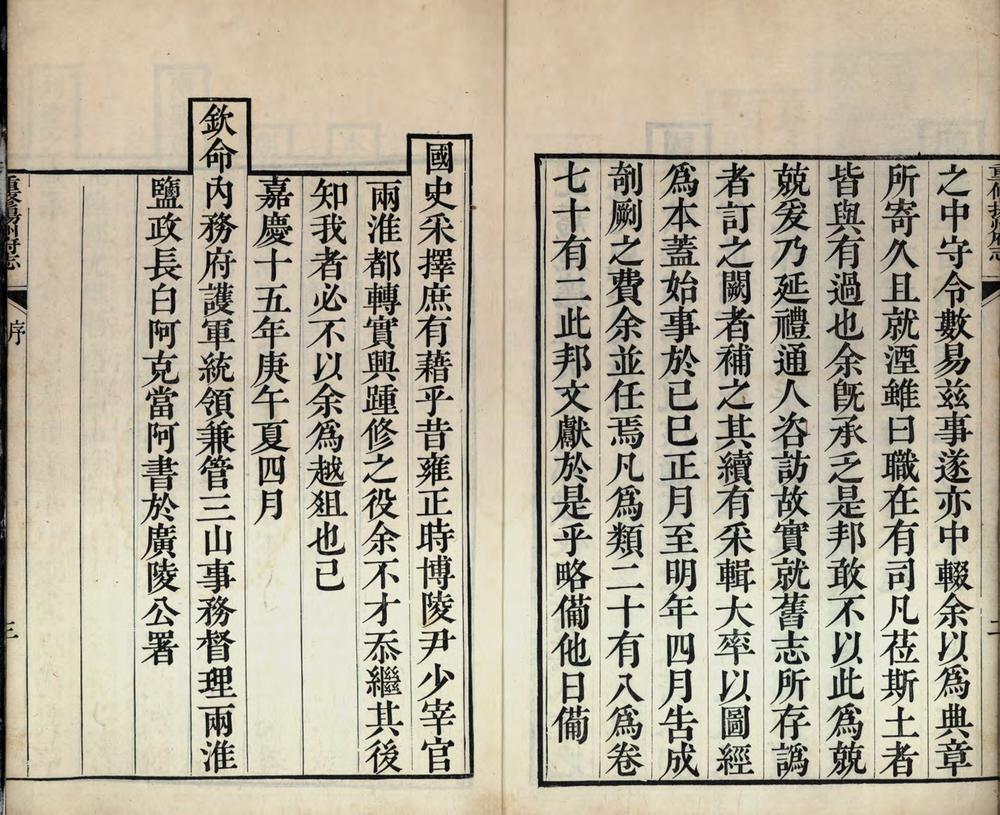 之中守令數易茲事遂亦中輟余以爲典章
所寄久且就湮雖曰職在有司凡莅斯土者
皆與有過也余旣承乏是邦敢不以此爲兢
兢爰乃延禮通人咨訪故實就舊志所存譌
者訂之闕者補之其續有采輯大率以圖經
爲本蓋始事於己巳正月至明年四月告成
剞劂之費余並任焉凡爲類二十有八爲卷
七十有二此邦文獻於是乎略備他日備
國史采擇庶有藉乎昔雍正時博陵尹少宰官
兩淮都轉實興踵修之役余不才忝繼其後
知我者必不以余爲越俎也已
嘉慶十五年庚午夏四月
欽命內務府護軍統領兼管三山事務督理兩淮
鹽政長白阿克當阿書於廣陵公署
重修揚州府志
序
三